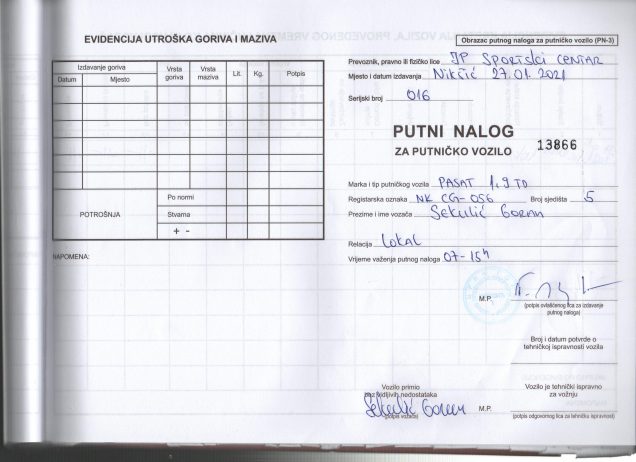 EVIDENCIJA UTROŠKA GORIVA I MAZIVA
Izdavanje goriva
Datum Mjesto Vrsta goriva Vrsta maziva Lit. Kg. Potpis
POTROŠNJA
Po normi
Stvarna
+ -
NAPOMENA:
Obrazac putnog naloga za putničko vozilo (PN-3)
Prevoznik, pravno ili fizičko lice JP SPORTSKI CENTAR
Mjesto i datum izdavanja Nikšić 27.01.2021
Serijski broj 016
PUTNI NALOG
ZA PUTNIČKO VOZILO 13866
Marka i tip putničkog vozila PASAT 1.9 TD
Registarska oznaka NK CG-056 Broj sjedišta 5
Prezime i ime vozača Sekulić Goran
Relacija Lokal
Vrijeme važenja putnog naloga 07-15h
M.P.
(potpis ovlašćenog lica za izdavanje
putnog naloga)
Broj i datum potvrde o
tehničkoj ispravnosti vozila
Vozilo primio
bez vidljivih nedostataka
Sekulić Goran
(potpis vozača)
M.P.
Vozilo je tehnički ispravno
za vožnju
(potpis odgovornog lica za tehničku ispravnost)